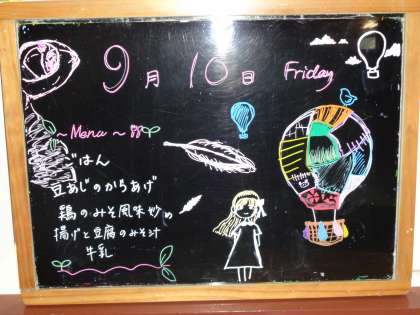 9月10日 Friday
～Menu～
ごはん
豆あじのからあげ
鶏のみそ風味炒め
揚げと豆腐のみそ汁
牛乳